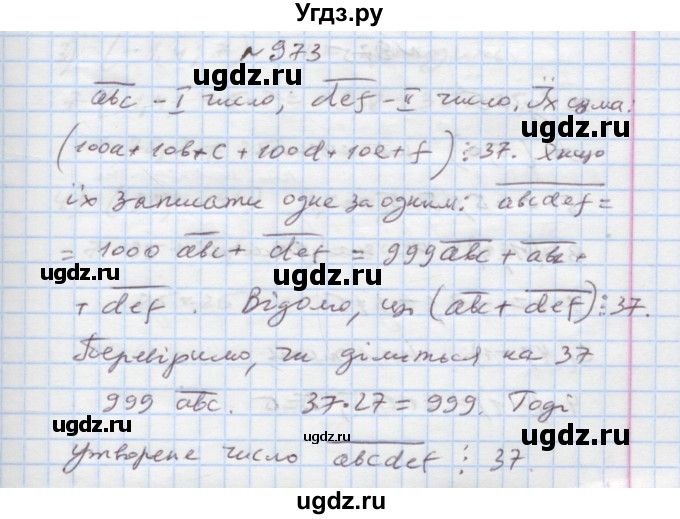 Угдз.ру
№973
ugdz.ru
abc - I число, def - II число. Їх сума:
(100a+10b+c+100d+10e+f) ⋮ 37. Якщо
їх записати одне за одним: abcdef =
ugdz.ru ugdz.ru
= 1000 abc + def = 999abc + abc +
+ def. Відомо, що (abc + def) ⋮ 37.
ugdz.ru
Перевіримо, чи ділиться на 37
ugdz.ru
999 abc. 37·27 = 999. Тоді
ugdz.ru
утворене число abcdef ⋮ 37.
ugdz.ru ugdz.ru